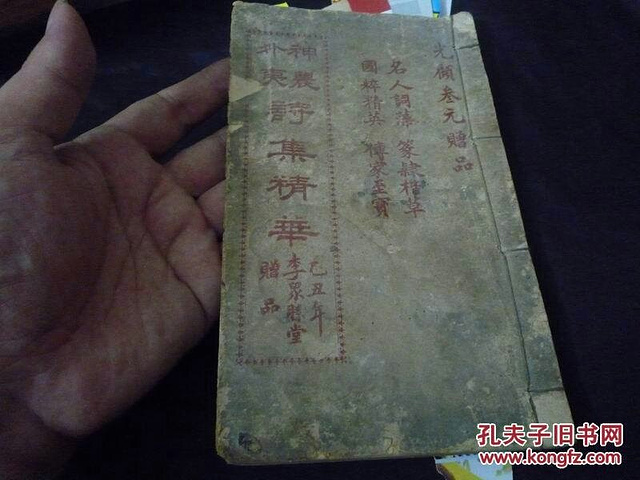 光顧叁元贈品
名人詞藻 篆隸楷草
國粹精英 傳家至寶
神農
詩集精華
己丑年
李眾勝堂
贈品
孔夫子旧书网
www.kongfz.com